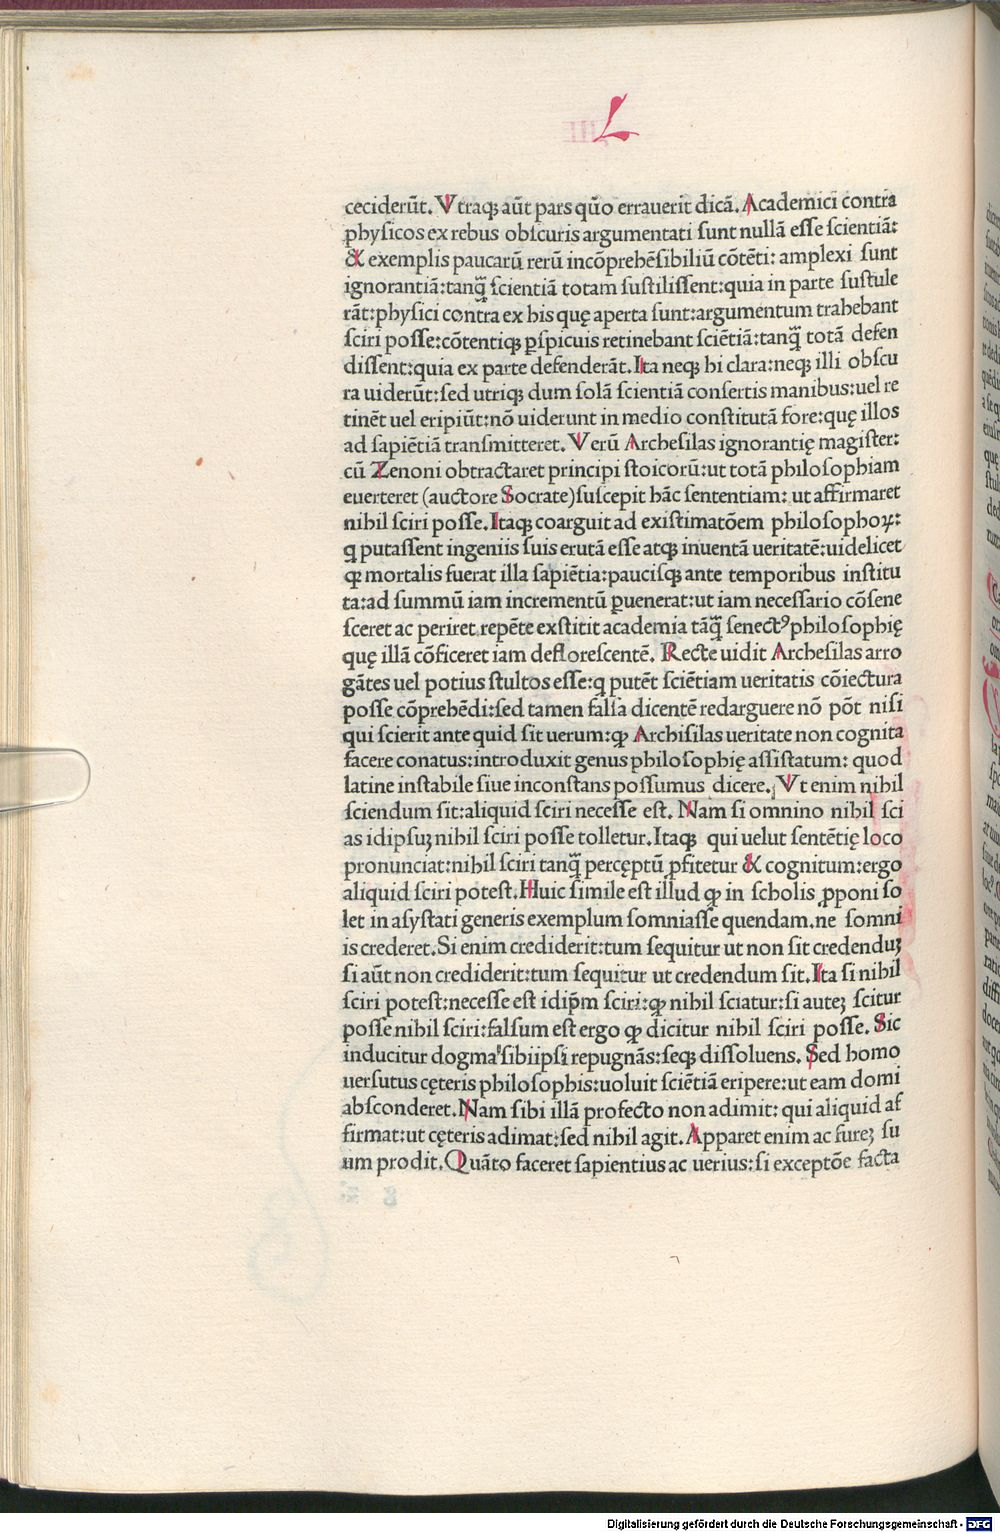 L
ceciderūt. Vtraq; aūt pars quō errauerit dicā. Academici contra
physicos ex rebus obscuris argumentati sunt nullā esse scientiā:
& exemplis paucarū rerū incōprehēsibiliū cōtēti: amplexi sunt
ignorantiā: tanq̄ scientiā totam sustilissent: quia in parte sustule
rāt: physici contra ex his quę aperta sunt: argumentum trahebant
sciri posse: cōtentiq; ꝑspicuis retinebant sciētiā: tanq̄ totā defen
dissent: quia ex parte defenderāt. Ita neq; hi clara: neq; illi obscu
ra uiderūt: sed utriq; dum solā scientiā consertis manibus: uel re
tinēt uel eripiūt: nō uiderunt in medio constitutā fore: quę illos
ad sapiētiā transmitteret. Verū Archesilas ignorantię magister:
cū Zenoni obtractaret principi stoicorū: ut totā philosophiam
euerteret (auctore Socrate) suscepit hāc sententiam: ut affirmaret
nihil sciri posse. Itaq; coarguit ad existimatōem philosophoꝝ:
q putassent ingeniis suis erutā esse atq; inuentā ueritatē: uidelicet
ꝙ mortalis fuerat illa sapiētia: paucisq; ante temporibus institu
ta: ad summū iam incrementū ꝑuenerat: ut iam necessario cōsene
sceret ac periret repēte exstitit academia tāq̄ senectꝰ philosophię
quę illā cōficeret iam deflorescentē. Recte uidit Archesilas arro
gātes uel potius stultos esse: q putēt sciētiam ueritatis cōiectura
posse cōprehēdi: sed tamen falsa dicentē redarguere nō pōt nisi
qui scierit ante quid sit uerum: ꝙ Archisilas ueritate non cognita
facere conatus: introduxit genus philosophię assistatum: quod
latine instabile siue inconstans possumus dicere. Vt enim nihil
sciendum sit: aliquid sciri necesse est. Nam si omnino nihil sci
as idipsuꝫ nihil sciri posse tolletur. Itaq; qui uelut sentētię loco
pronunciat: nihil sciri tanq̄ percęptū ꝓfitetur & cognitum: ergo
aliquid sciri potest. Huic simile est illud ꝙ in scholis ꝓponi so
let in asystati generis exemplum somniasse quendam. ne somni
is crederet. Si enim crediderit: tum sequitur ut non sit credenduꝫ
si aūt non crediderit: tum sequitur ut credendum sit. Ita si nihil
sciri potest: necesse est idip̄m sciri: ꝙ nihil sciatur: si auteꝫ scitur
posse nihil sciri: falsum est ergo ꝙ dicitur nihil sciri posse. Sic
inducitur dogma sibiipsi repugnās: seq; dissoluens. Sed homo
uersutus cęteris philosophis: uoluit sciētiā eripere: ut eam domi
absconderet. Nam sibi illā profecto non adimit: qui aliquid af
firmat: ut cęteris adimat: sed nihil agit. Apparet enim ac fureꝫ su
um prodit. Quāto faceret sapientius ac uerius: si exceptōe facta
Digitalisierung gefördert durch die Deutsche Forschungsgemeinschaft - DFG